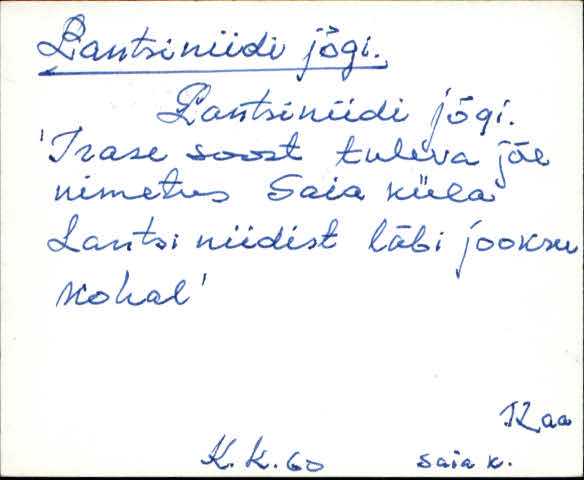 Lantsiniidi jõgi.
Lantsiniidi jõgi.
'Irase soost tuleva jõe
nimetus Saia küla
Lantsi niidist läbi jooksu
kohal'
Kaa
K.K.60 Saia k.